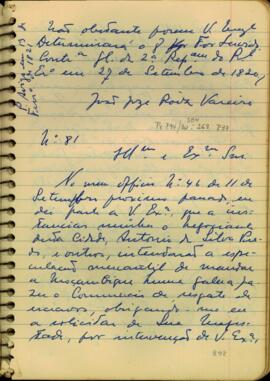 Não obstante porem V. Exª
Determinará o q. for servido
em 27 de Setembro de 1820
João José
Nº 81
Illᵐᵒ e Exᵐᵒ Snr.
No meu officio Nº 41 de 11 de
Setembro proximo passado,
dei parte a V. Exª, que a ins-
tancias minhas o Negociante
desta Cidade, Antonio da Silva
e outros, intentavão a espe-
culação mercantil de mandar
a Moçambique huma galera pa-
ra o Commercio de resgate de
escravos, obrigando-me eu
a solicitar de Sua Mages-
tade, por intervenção de V. Exª,